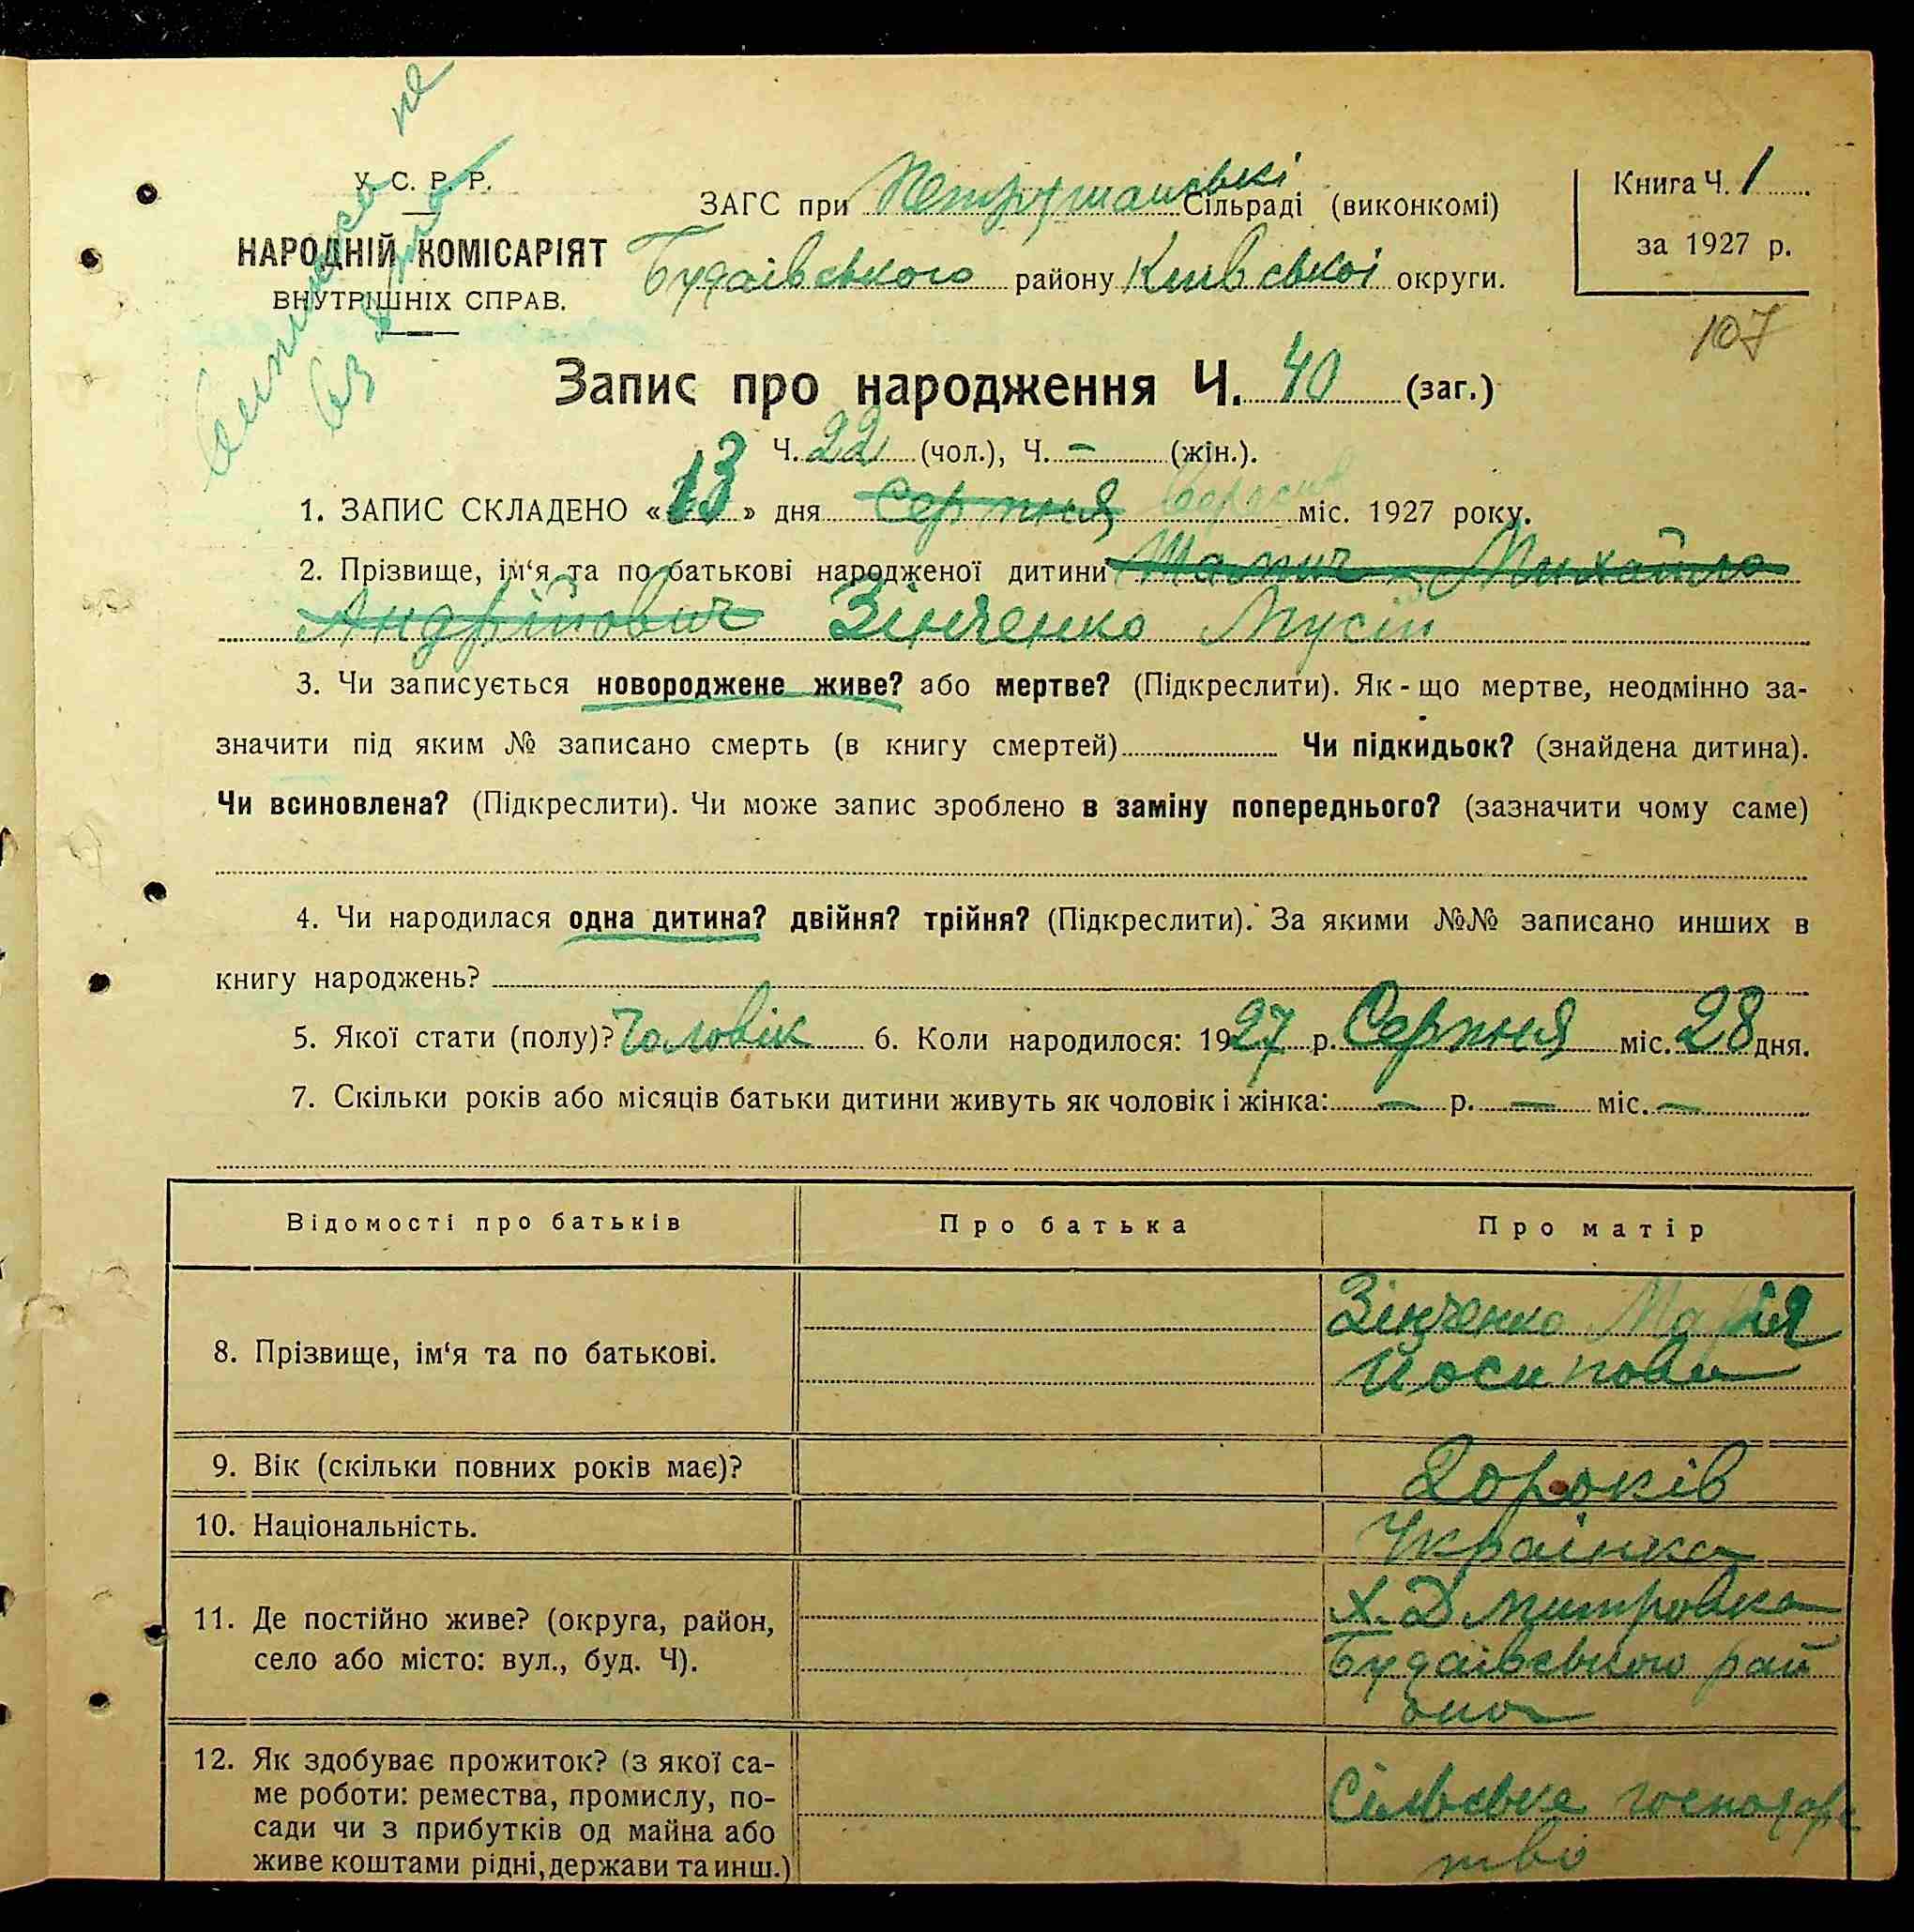 не
У. С. Р. Р.
НАРОДНІЙ КОМІСАРІЯТ
ВНУТРІШНІХ СПРАВ.
ЗАГС при Петрушанські Сільраді (виконкомі)
Будаівського району Київськоі округи.
Книга Ч. 1
за 1927 р.
107
Запис про народження Ч. 40 (заг.)
Ч. 22 (чол.), Ч. — (жін.).
1. ЗАПИС СКЛАДЕНО «13» дня Серпня Вересня міс. 1927 року.
2. Прізвище, ім‘я та по батькові народженої дитини Михайло
Андрійович Зінченко Мусій
3. Чи записується новороджене живе? або мертве? (Підкреслити). Як-що мертве, неодмінно за-
значити під яким № записано смерть (в книгу смертей) Чи підкидьок? (знайдена дитина).
Чи всиновлена? (Підкреслити). Чи може запис зроблено в заміну попереднього? (зазначити чому саме)
4. Чи народилася одна дитина? двійня? трійня? (Підкреслити). За якими №№ записано инших в
книгу народжень?
5. Якої стати (полу)? Чоловік 6. Коли народилося: 1927 р. Серпня міс. 28 дня.
7. Скільки років або місяців батьки дитини живуть як чоловік і жінка: — р. — міс. —
Відомості про батьків Про батька Про матір
8. Прізвище, ім‘я та по батькові. Зінченко Марія
Йосипова
9. Вік (скільки повних років має)? 20 років
10. Національність. Украінка
11. Де постійно живе? (округа, район, х. Дмитровка
село або місто: вул., буд. Ч). Будаівського рай
она
12. Як здобуває прожиток? (з якої са-
ме роботи: ремества, промислу, по- Сільське господарс
сади чи з прибутків од майна або
живе коштами рідні, держави та инш.) тво